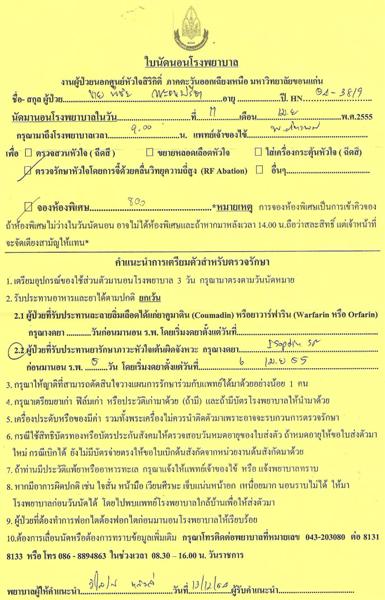 ใบนัดนอนโรงพยาบาล
งานผู้ป่วยนอกศูนย์หัวใจสิริกิติ์ ภาคตะวันออกเฉียงเหนือ มหาวิทยาลัยขอนแก่น
ชื่อ- สกุล ผู้ป่วย อายุ ปี. HN.
นัดมานอนโรงพยาบาลในวัน ที่ เดือน พ.ศ.2555
กรุณามาถึงโรงพยาบาลเวลา 9.00 น. แพทย์เจ้าของไข้
เพื่อ ตรวจสวนหัวใจ ( ฉีดสี ) ขยายหลอดเลือดหัวใจ ใส่เครื่องกระตุ้นหัวใจ ( ฉีดสี)
ตรวจรักษาหัวใจโดยการจี้ด้วยคลื่นวิทยุความถี่สูง (RF Abation) อื่นๆ
จองห้องพิเศษ 800 *หมายเหตุ การจองห้องพิเศษเป็นการเข้าคิวจอง
ถ้าห้องพิเศษไม่ว่างในวันนัดนอน อาจไม่ได้ห้องพิเศษและถ้าหากมาหลังเวลา 14.00 น.ถือว่าสละสิทธิ์ แต่เจ้าหน้าที่
จะจัดเตียงสามัญให้แทน*
คำแนะนำการเตรียมตัวสำหรับตรวจรักษา
1. เตรียมอุปกรณ์ของใช้ส่วนตัวมานอนโรงพยาบาล 3 วัน กรุณามาตรงตามวันนัดหมาย
2. รับประทานอาหารและยาได้ตามปกติ ยกเว้น
2.1 ผู้ป่วยที่รับประทานละลายลิ่มเลือดได้แก่ยาคูมาดิน (Coumadin) หรือยาวาร์ฟาริน (Warfarin หรือ Orfarin)
กรุณางดยา วันก่อนมานอน ร.พ. โดยเริ่มงดยาตั้งแต่วันที่
2.2 ผู้ป่วยที่รับประทานยารักษาภาวะหัวใจเต้นผิดจังหวะ กรุณางดยา Isoptin SR
ก่อนมานอน ร.พ. 5 วัน โดยเริ่มงดยาตั้งแต่วันที่ 6 เม.ย 55
3. กรุณาให้ญาติที่สามารถตัดสินใจวางแผนการรักษาร่วมกับแพทย์ได้มาด้วยอย่างน้อย 1 คน
4. กรุณาเตรียมยาเก่า ฟิล์มเก่า หรือประวัติเก่ามาด้วย (ถ้ามี) และถ้ามีบัตรโรงพยาบาลให้นำมาด้วย
5. เครื่องประดับหรือของมีค่า รวมทั้งพระเครื่องไม่ควรนำติดตัวมาเพราะอาจจะรบกวนการตรวจรักษา
6. กรณีใช้สิทธิบัตรทองหรือบัตรประกันสังคมให้ตรวจสอบวันหมดอายุของใบส่งตัว ถ้าหมดอายุให้ขอใบส่งตัวมา
ใหม่ กรณีเบิกได้ ยังไม่มีบัตรจ่ายตรงให้ขอใบเบิกต้นสังกัดจากหน่วยงานต้นสังกัดมาด้วย
7. ถ้าท่านมีประวัติแพ้ยาหรืออาหารทะเล กรุณาแจ้งให้แพทย์เจ้าของไข้ หรือ แจ้งพยาบาลทราบ
8. หากมีอาการผิดปกติ เช่น ใจสั่น หน้ามืด เวียนศีรษะ เจ็บแน่นหน้าอก เหนื่อยมาก นอนราบไม่ได้ ให้มา
โรงพยาบาลก่อนวันนัดได้ โดยไปพบแพทย์โรงพยาบาลใกล้บ้านเพื่อให้ส่งตัวมา
9. ผู้ป่วยที่ต้องทำการฟอกไตต้องฟอกไตก่อนมานอนโรงพยาบาลให้เรียบร้อย
10.ต้องการเลื่อนนัดหรือต้องการทราบข้อมูลเพิ่มเติม กรุณาโทรติดต่อพยาบาลที่หมายเลข 043-203080 ต่อ 8131
8133 หรือ โทร 086 - 8894863 ในช่วงเวลา 08.30 – 16.00 น. วันราชการ
พยาบาลผู้ให้คำแนะนำ วันที่ 13/12/54 ผู้รับคำแนะนำ